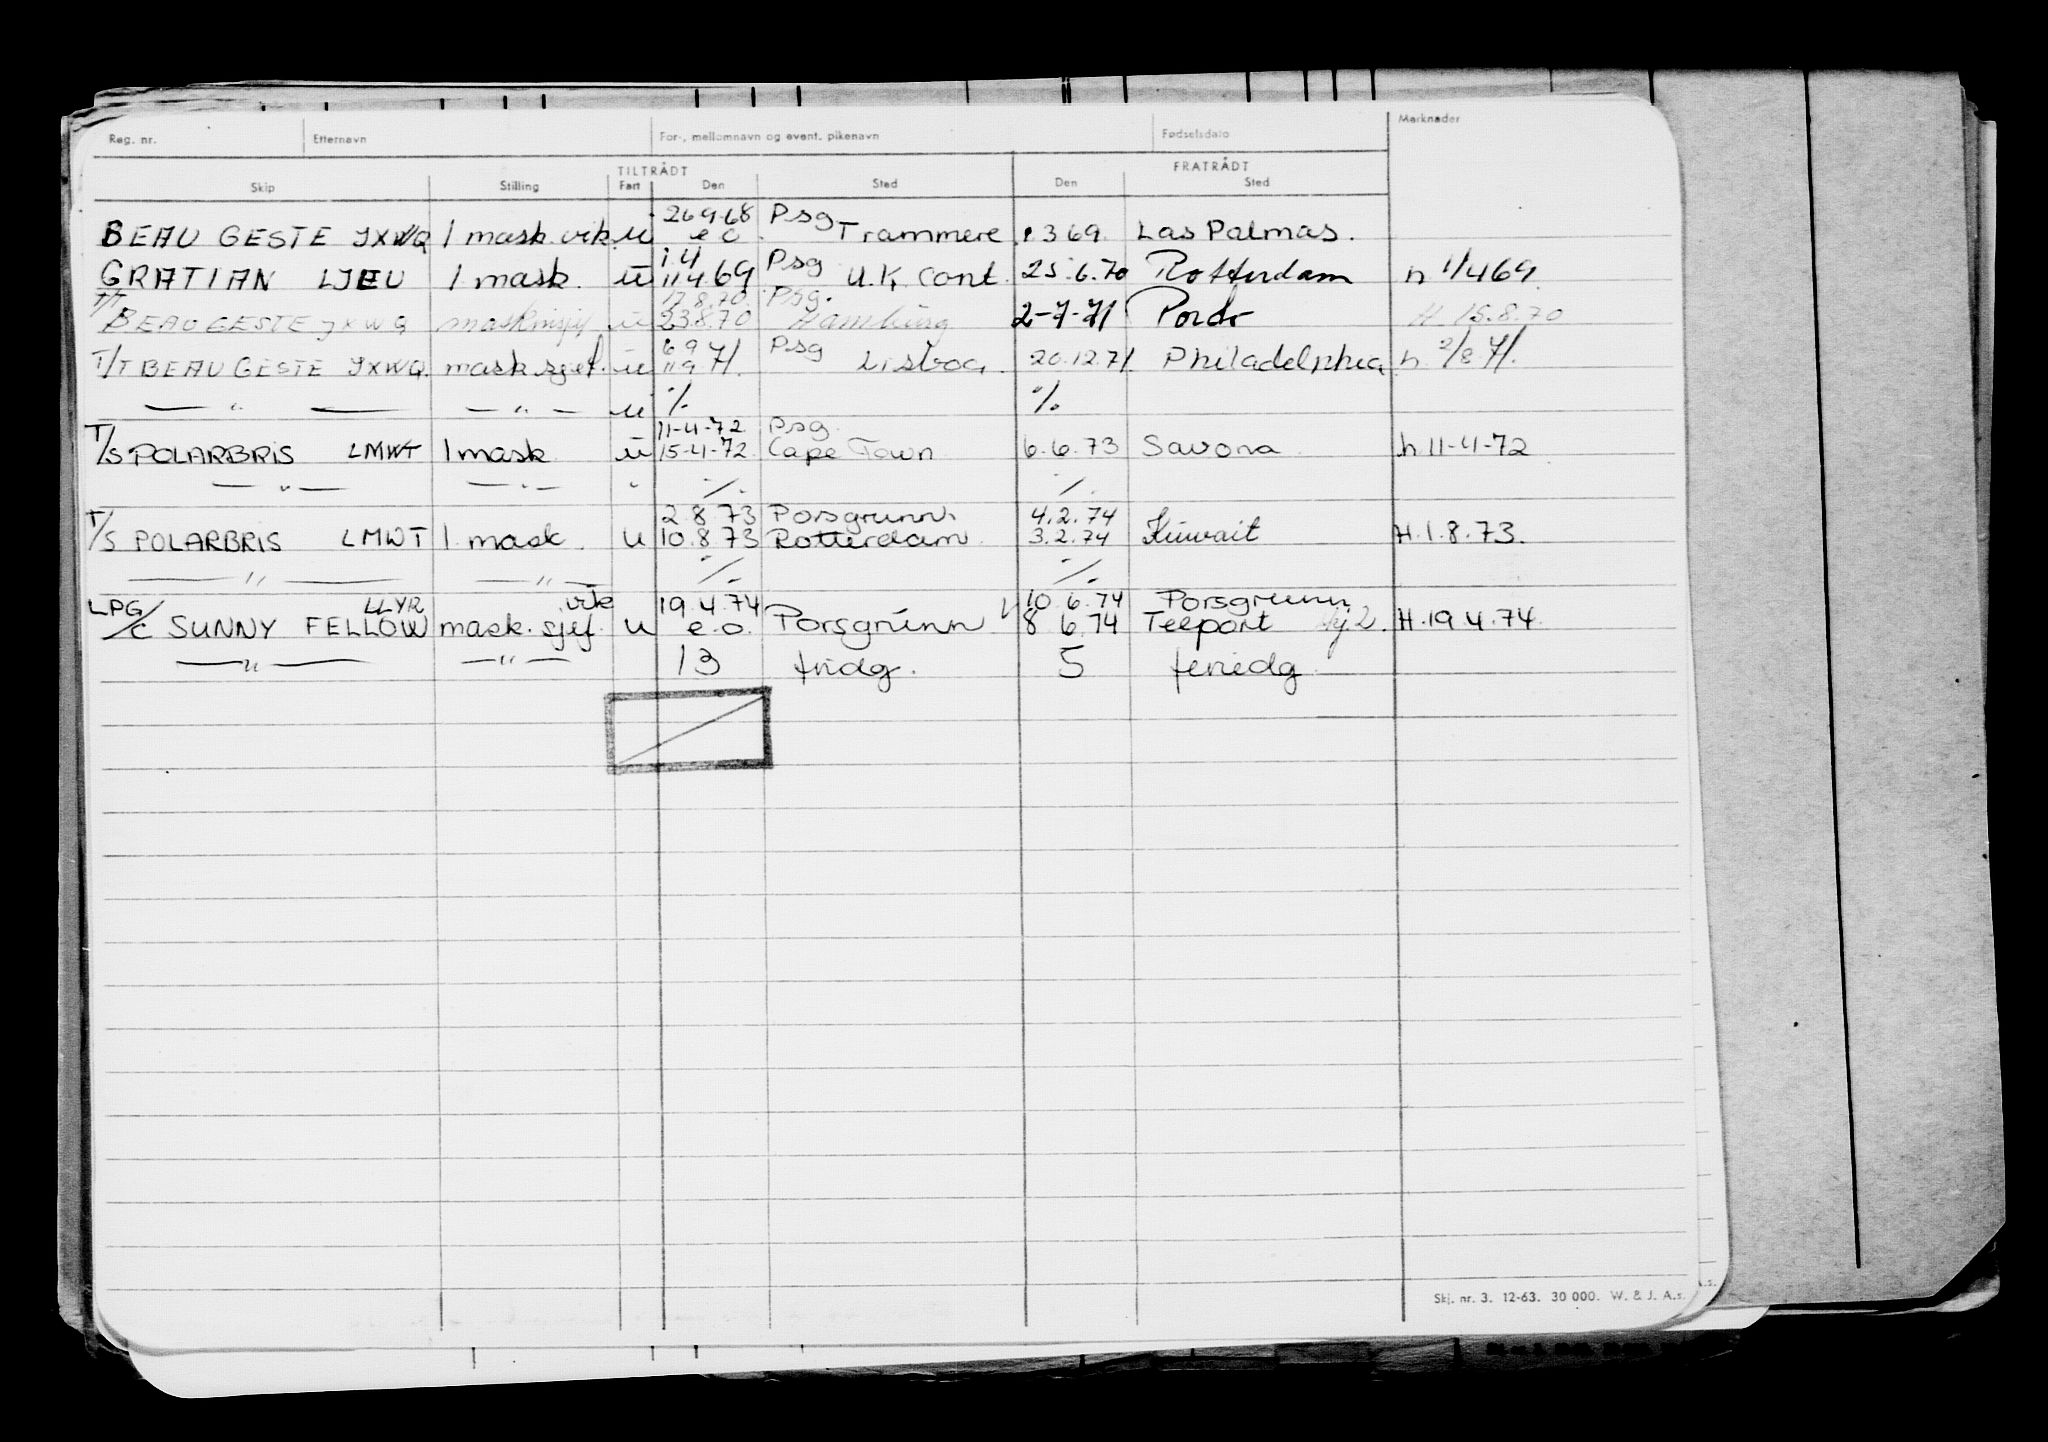 Reg. nr. Etternavn For-, mellomnavn og event. pikenavn Fødselsdato Merknader
TILTRÅDT FRATRÅDT
Skip Stilling Fart Den Sted Den Sted
26 9.68 Psg
BEAU GESTE JXWQ 1 mask. vik. u e o Trammere 1 3 69. Las Palmas.
1.4 Psg
GRATIAN LJEU 1 mask. u 11 4 69 U.K. Cont. 25.6.70 Rotterdam h 1/4 69.
17.8.70. Psg.
T/T BEAU GESTE JXWQ maskinsjef u 23.8.70 Hamburg 2-7-71 H. 15.8.70
6 9 Psg
T/T BEAU GESTE JXWQ. mask sjef. u 11 9 71. Lisboa. 20.12.71. Philadelphia h. 2/8.71.
— " — — " — u % %
11-4-72 Psg.
T/S POLARBRIS LMWT 1 mask u 15-4-72. Cape Town 6.6.73 Savona h 11-4-72
— " — — " — " % %
2 8 73 Porsgrunn 4.2.74
T/S POLARBRIS LMWT 1. mask. u 10.8.73 Rotterdam. 3.2.74 Kuwait H.1.8.73.
— " — — " — % %
LPG/C LLYR vik 19.4.74 10.6.74 Porsgrunn
SUNNY FELLOW mask. sjef. u e.o. Porsgrunn 8 6.74 Teeport H.19.4.74.
— " — — " — 13 fridg. 5 feriedg.
Skj. nr. 3. 12-63. 30 000. W. & J. A.s.